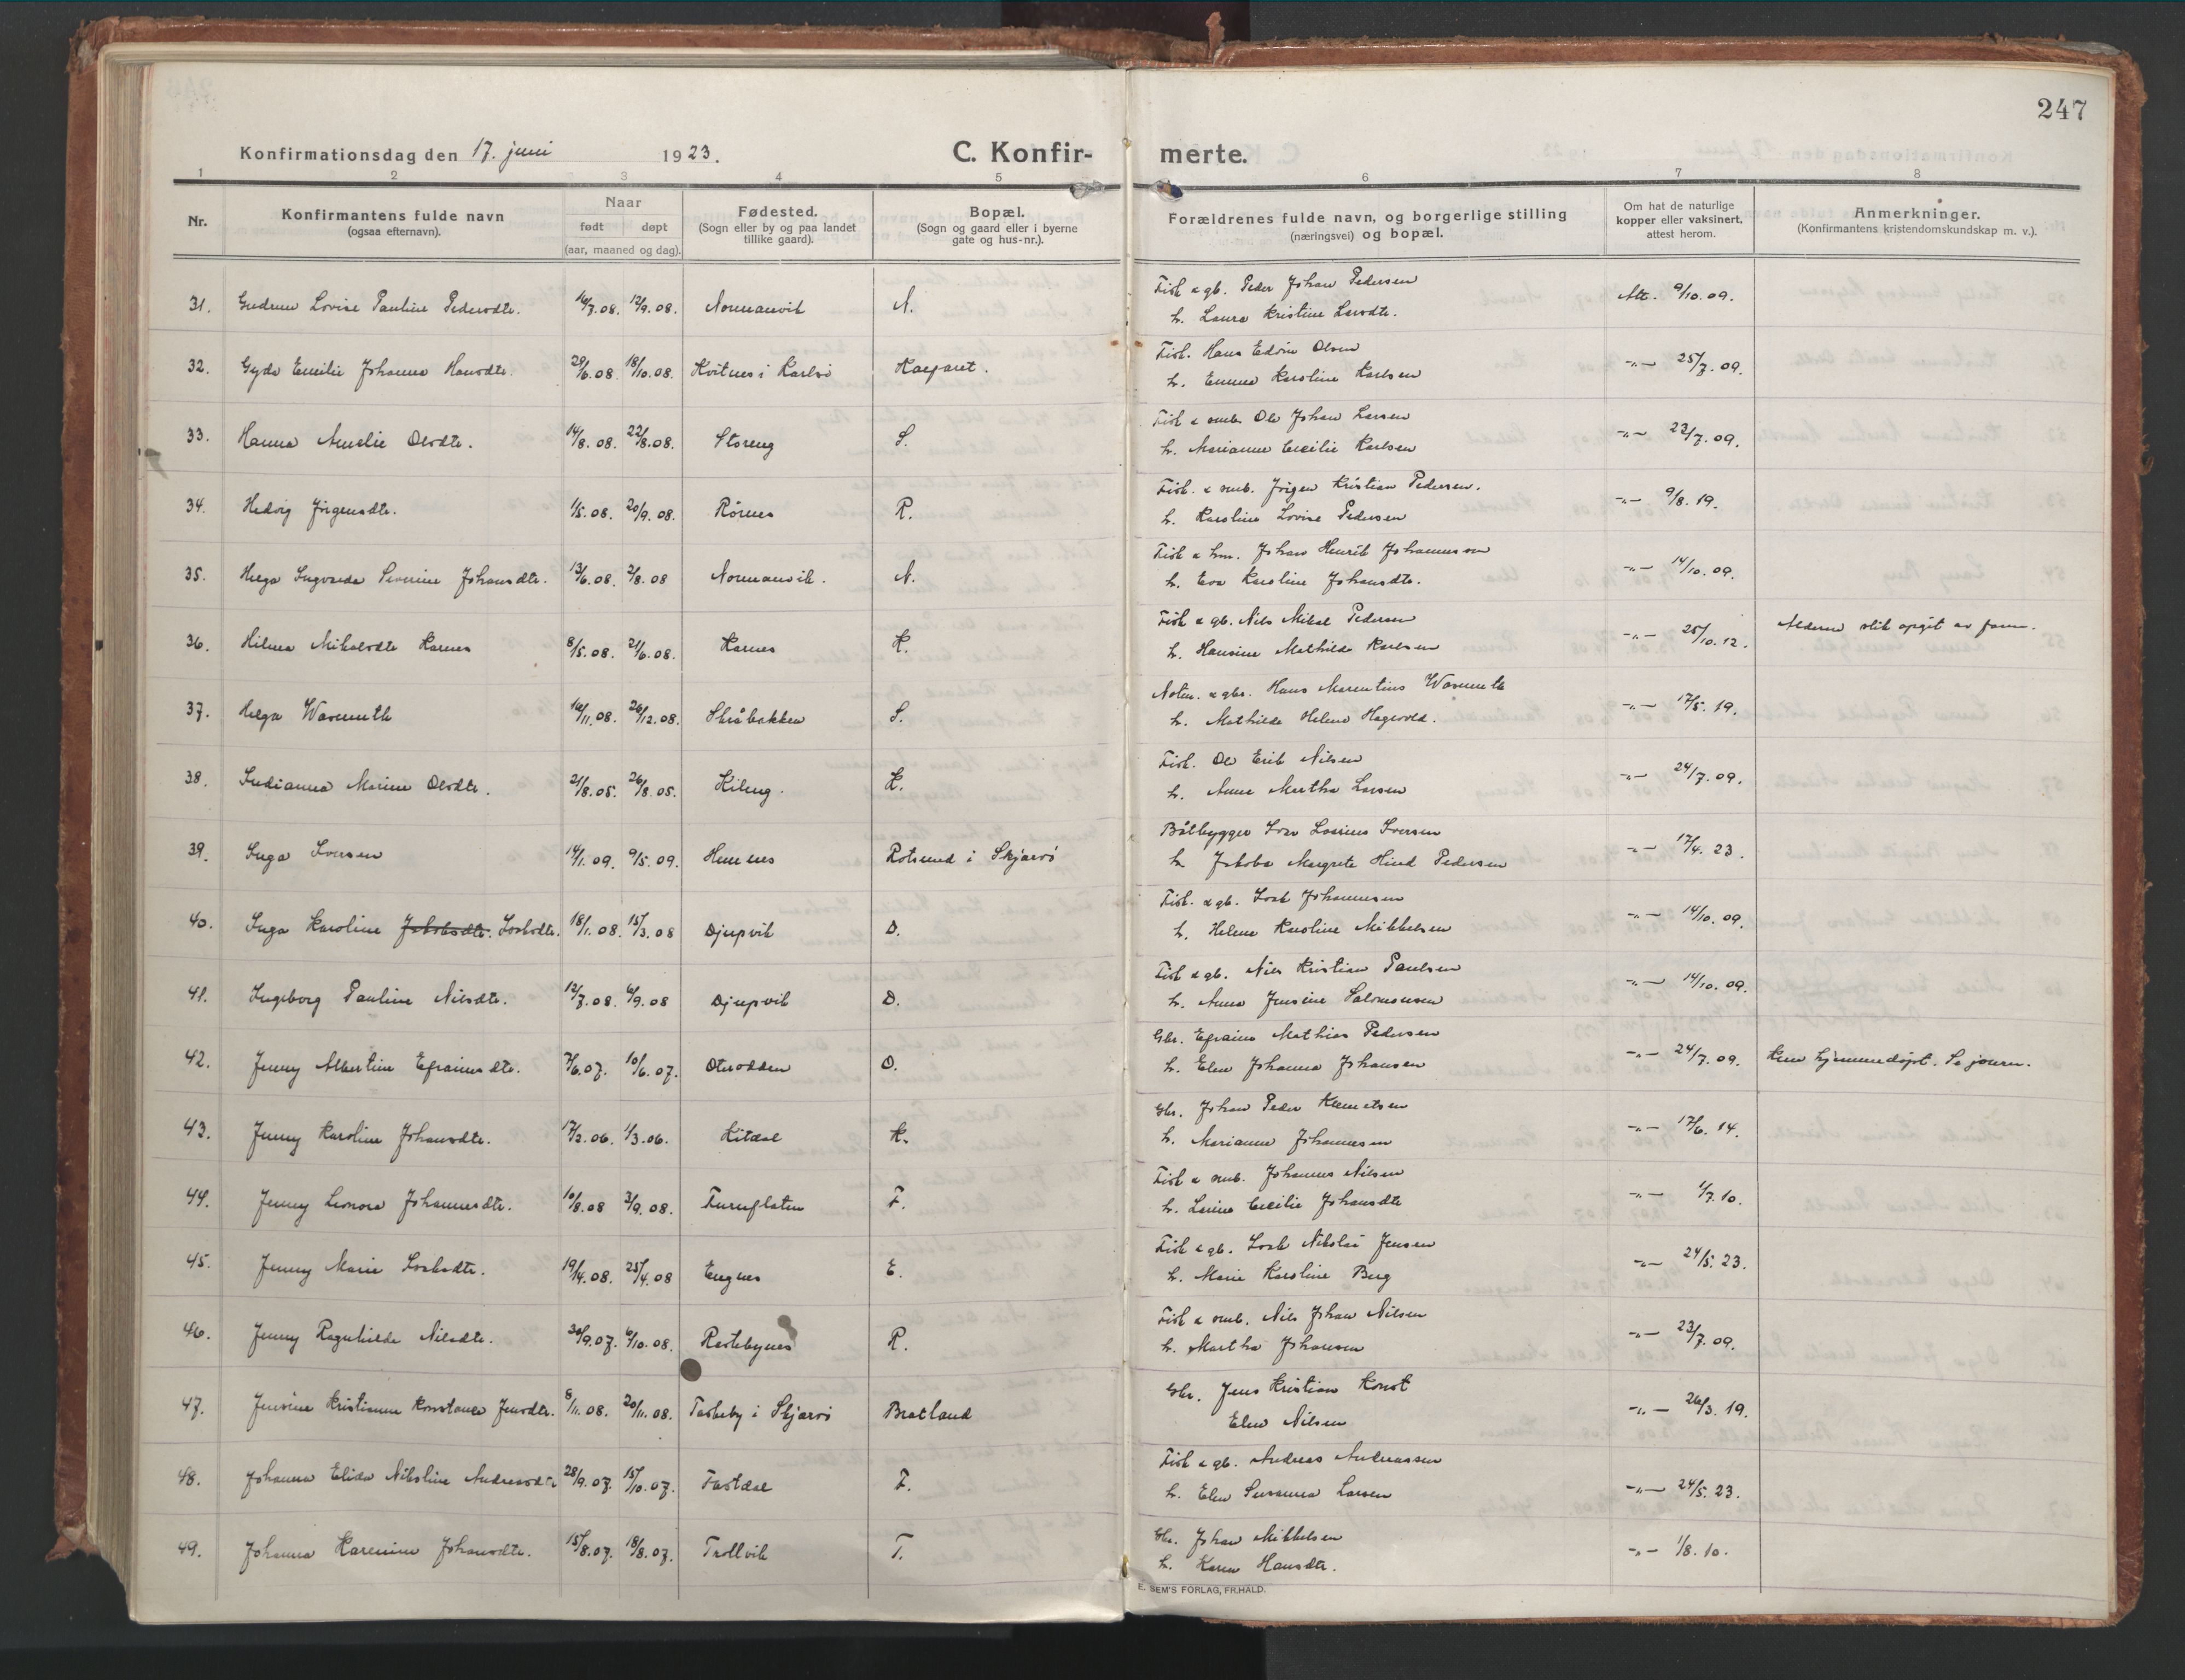 247
Konfirmationsdag den 17. juni 1923. C. Konfir- merte.
1 2 3 4 5 6 7 8
Nr. Konfirmantens fulde navn (ogsaa efternavn). Naar født døpt (aar, maaned og dag). Fødested. (Sogn eller by og paa landet tillike gaard). Bopæl. (Sogn og gaard eller i byerne gate og hus-nr.). Forældrenes fulde navn, og borgerlige stilling (næringsvei) og bopæl. Om hat de naturlige kopper eller vaksinert, attest herom. Anmerkninger. (Konfirmantens kristendomskundskap m. v.).
31. Gudrun Lovise Pauline Pedersdtr. 16/7.08. 12/9.08. Normanvik N. Fisk. & gb. Peder Johan Pedersen Att. 9/10.09.
h. Laura Kristine Larsdtr.
32. Gyda Emilie Johanna Hansdtr. 29/6.08. 18/10.08. Kvitnes i Karlsø Kagsret. Fisk. Hans Edvin Olsen -"- 25/7.09.
h. Emma Karoline Karlsen
33. Hanna Amalie Olsdtr. 14/8.08. 22/8.08. Storeng S. Fisk & smb. Ole Johan Larsen -"- 23/7.09.
h. Marianne Cecilie Karlsen
34. Hedvig Jørgensdtr. 1/5.08. 20/9.08. Rørnes R. Fisk. & smb. Jørgen Kristian Pedersen. -"- 9/8.19.
h. Karoline Lovise Pedersen
35. Helga Ingvarda Severine Johansdtr. 13/6.08. 2/8.08 Normanvik. N. Fisk & hm. Johan Henrik Johannessen -"- 14/10.09.
h. Eva Karoline Johansdtr.
36. Hilma Mikalsdtr Karnes 8/5.08. 21/6.08. Karnes K. Fisk & gb. Nils Mikal Pedersen -"- 25/10.12. Alderen slik opgit av faren.
h. Hansine Mathilde Karlsen
37. Helga Wasmuth 16/11.08. 26/12.08. Skråbakken S. Notm. & gbr. Hans Marentius Wasmuth -"- 17/5.19.
h. Mathilde Helene Hagevold.
38. Indianna Marine Olsdtr. 21/8.05. 26/8.05. Kileng. K. Fisk. Ole Erik Nilsen -"- 24/7.09.
h. Anna Martha Larsen
39. Inga Iversen 14/1.09. 9/5.09. Hamnes Rotsund i Skjærvø Båtbygger Ivar Lovinus Iversen -"- 17/4.23.
h. Jakoba Margrete Hind Pedersen
40. Inga Karoline Jakobsdtr. Isaksdtr. 18/1.08. 15/3.08 Djupvik D. Fisk. & gb. Isak Johannesen -"- 14/10.09.
h. Helene Karoline Mikkelsen
41. Ingeborg Pauline Nilsdtr. 12/7.08. 6/9.08 Djupvik D. Fisk & gb. Nils Kristian Paulsen -"- 14/10.09.
h. Anna Jensine Salomonsen
42. Jenny Albertine Efraimsdtr. 7/6.07. 10/6.07. Oterodden O. Gbr. Efraim Mathias Pedersen -"- 24/7.09. Kun hjemmedøpt. Se journ.
h. Elen Johanna Johansen
43. Jenny Karoline Johansdtr. 17/2.06. 1/3.06. Kitdal K. Gbr. Johan Peder Klemetsen -"- 17/6.14.
h. Marianne Johannesen
44. Jenny Leonora Johannesdtr. 10/8.08 3/9.08. Furuflaten F. Fisk & smb. Johannes Nilsen -"- 1/7.10.
h. Lavina Cecilie Johansdtr
45. Jenny Marie Isaksdtr. 19/4.08. 25/4.08 Engnes E. Fisk & gb. Isak Nikolai Jensen -"- 24/5.23.
h. Marie Karoline Berg
46. Jenny Ragnhilda Nilsdtr. 30/9.07. 6/10.08. Rastebynes R. Fisk & smb. Nils Johan Nilsen -"- 23/7.09.
h. Martha Johansen
47. Jensine Kristianne Konstanse Jensdtr. 8/11.08. 20/11.08. Taskeby i Skjærvø Bratland Gbr. Jens Kristian Konst -"- 26/3.19.
Elen Nilsen
48. Johanna Elida Nikoline Andreasdtr 28/9.07. 15/10.07. Fastdal F. Fisk & gb. Andreas Andreassen -"- 24/5.23.
h. Elen Susanna Larsen
49. Johanna Karenine Johansdtr. 15/8.07. 18/8.07. Trollvik T. Gbr. Johan Mikkelsen -"- 1/8.10.
h. Karen Hansdtr.
E. SEM'S FORLAG, FR.HALD.